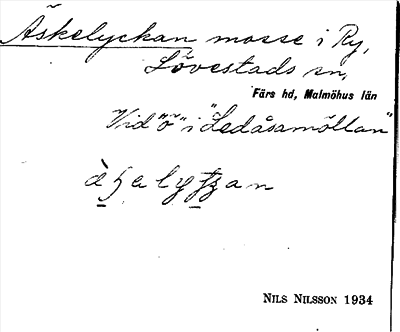 Äskelyckan mosse i Ry,
Lövestads sn,
Färs hd, Malmöhus län
Vid "ö" i "Ledåsamöllan"
NILS NILSSON 1934